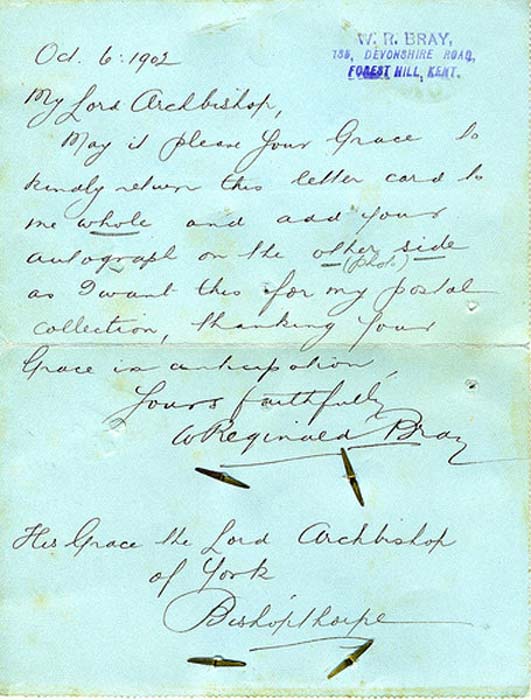 W. R. BRAY,
135, DEVONSHIRE ROAD,
FOREST HILL, KENT.
Oct. 6: 1902
My Lord Archbishop,
May it please Your Grace to
kindly return this letter card to
me whole and add your
autograph on the other side
(photo)
as I want this for my postal
collection, thanking Your
Grace in anticipation,
Yours faithfully
W Reginald Bray
His Grace the Lord Archbishop
of York
Bishopthorpe